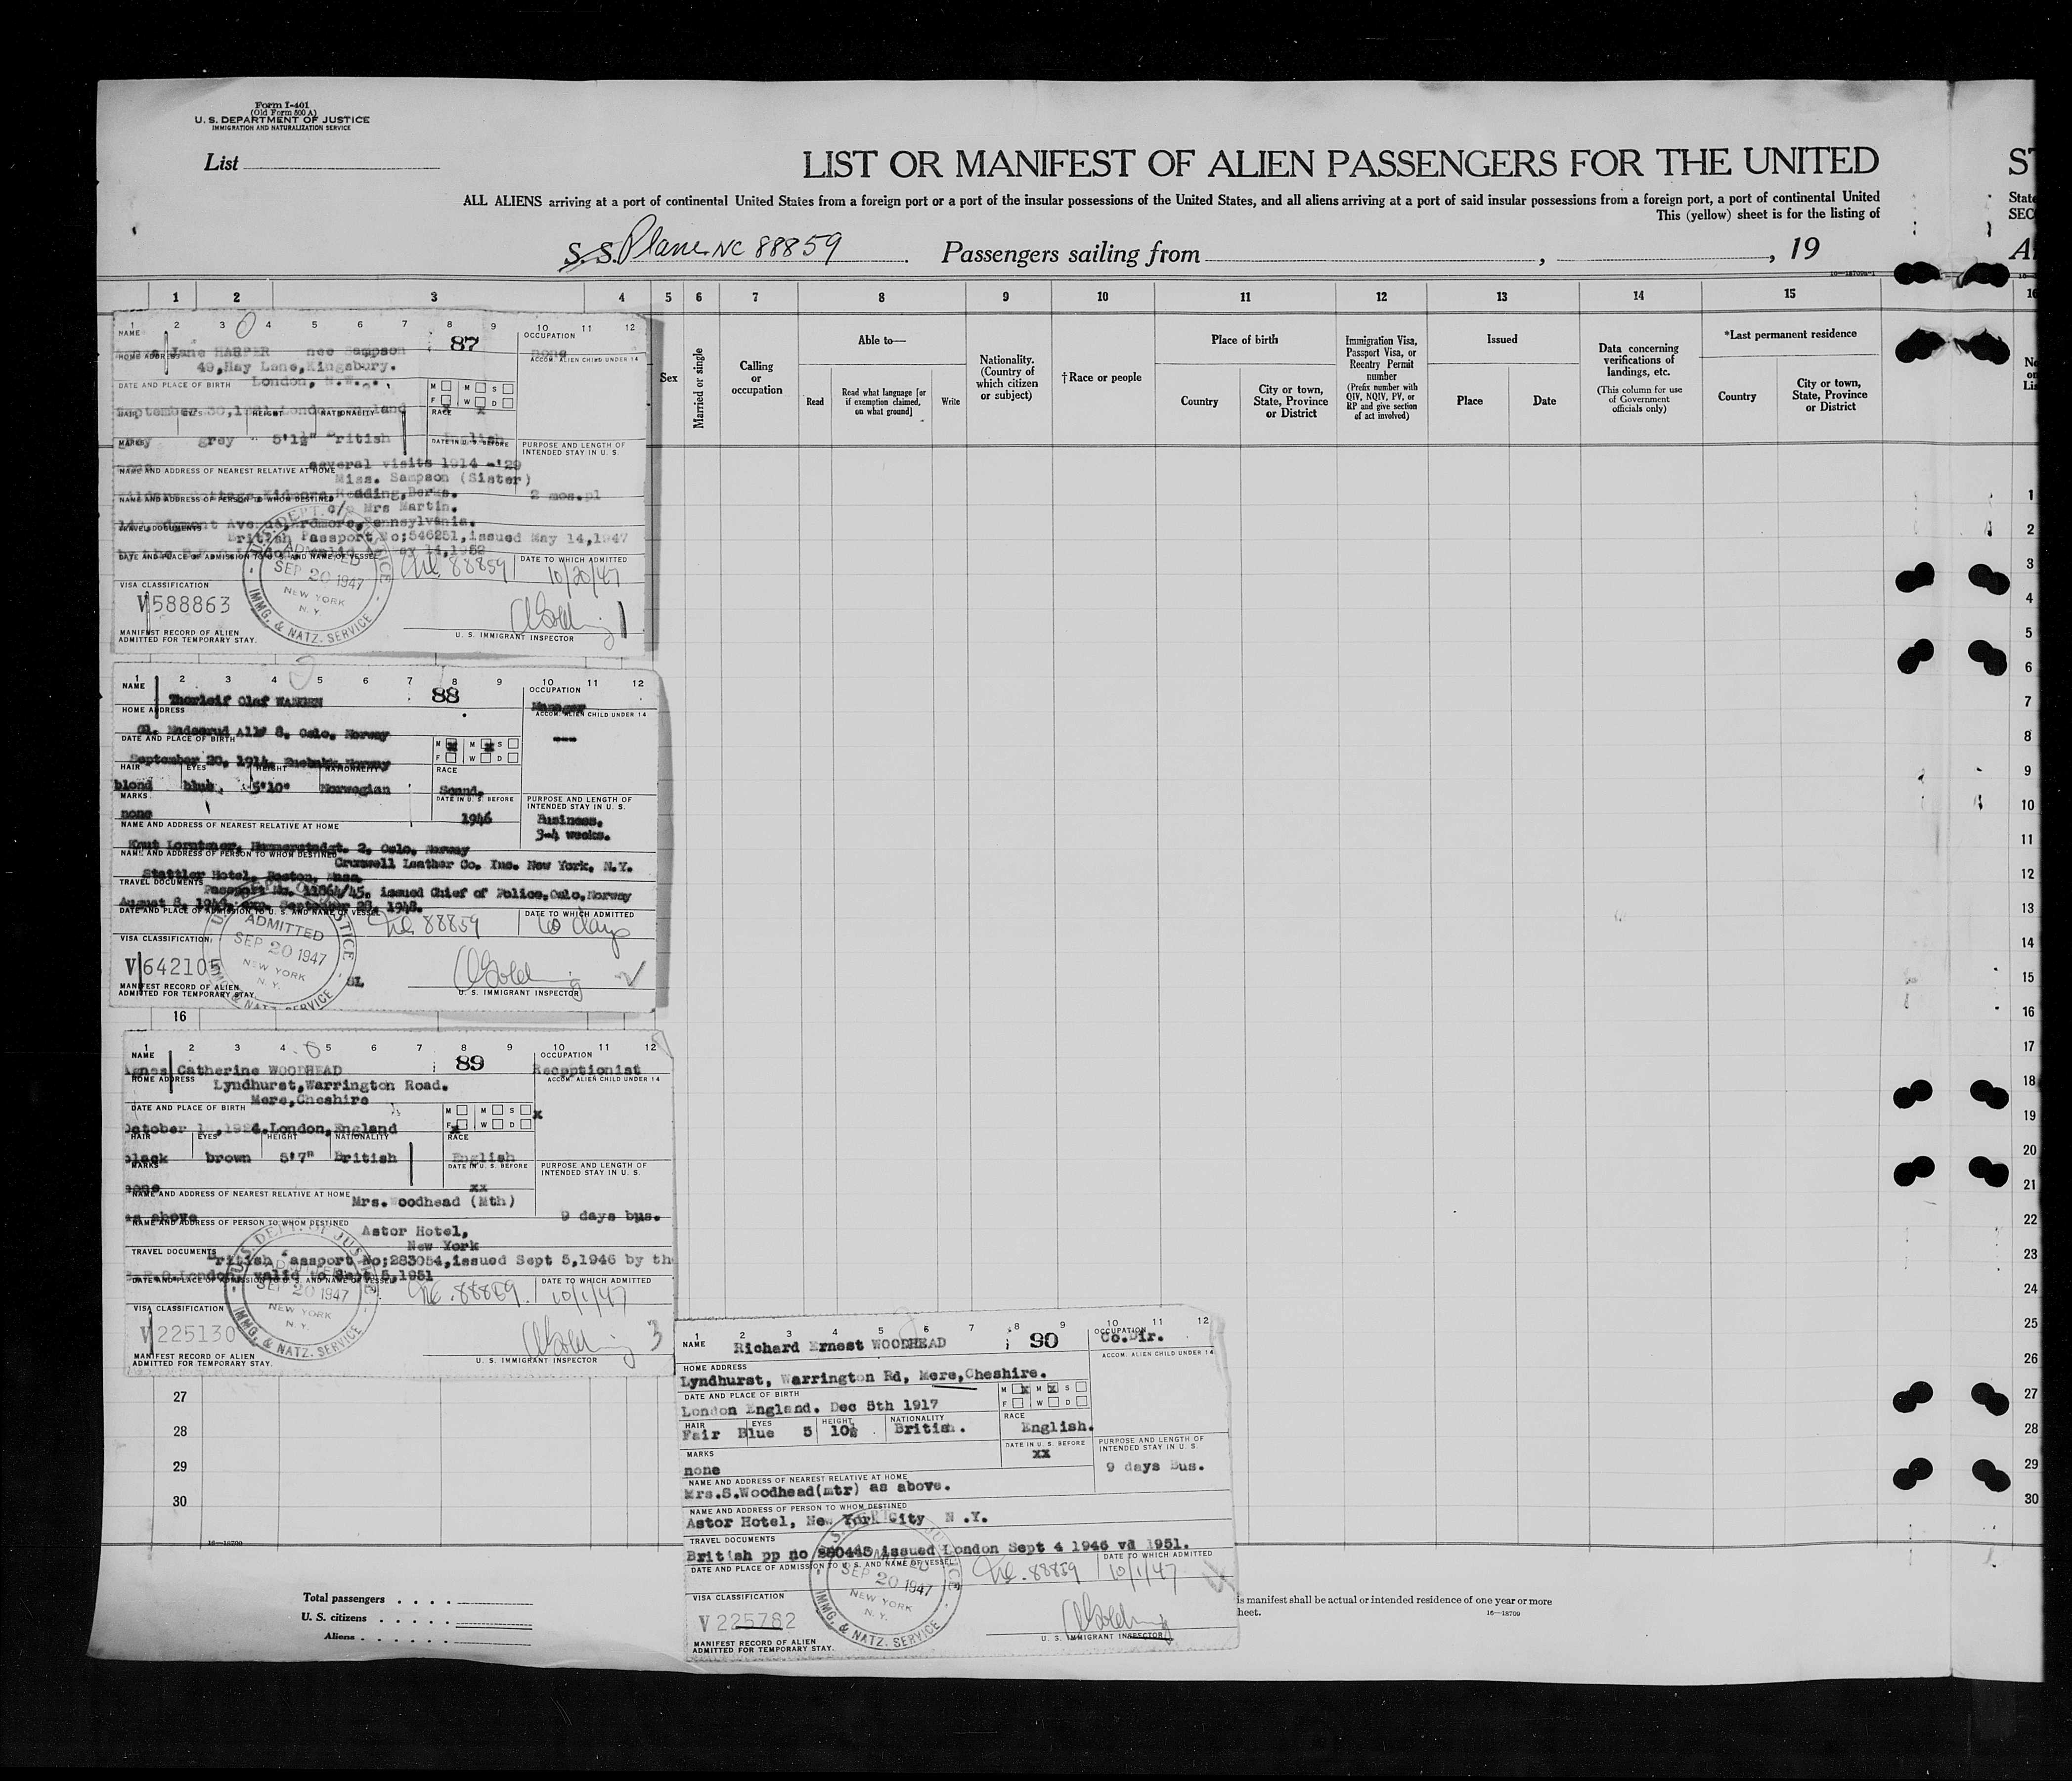 Form I-401
(Old Form 500 A)
U. S. DEPARTMENT OF JUSTICE
IMMIGRATION AND NATURALIZATION SERVICE
List
LIST OR MANIFEST OF ALIEN PASSENGERS FOR THE UNITED
ST
ALL ALIENS arriving at a port of continental United States from a foreign port or a port of the insular possessions of the United States, and all aliens arriving at a port of said insular possessions from a foreign port, a port of continental United
State
This (yellow) sheet is for the listing of
SEC
S. S. Plane NC 88859 Passengers sailing from , , 19
1 2 3 4 5 6 7 8 9 10 11 12 13 14 15
Sex
Married or single
Calling or occupation
Able to—
Read
Read what language [or if exemption claimed, on what ground]
Write
Nationality. (Country of which citizen or subject)
†Race or people
Place of birth
Country
City or town, State, Province or District
Immigration Visa, Passport Visa, or Reentry Permit number
(Prefix number with QIV, NQIV, PV, or RP and give section of act involved)
Issued
Place
Date
Data concerning verifications of landings, etc.
(This column for use of Government officials only)
*Last permanent residence
Country
City or town, State, Province or District
1 2 3 4 5 6 7 8 9 10 11 12
NAME
87
OCCUPATION
Jane HARPER nee Sampson
none
HOME ADDRESS
ACCOM. ALIEN CHILD UNDER 14
49, Hay Lane, Kingsbury.
DATE AND PLACE OF BIRTH
London, N.W.
M M S
F W D
HAIR EYES HEIGHT NATIONALITY
RACE
grey 5'1½" British
English
MARKS
DATE IN U. S. BEFORE
PURPOSE AND LENGTH OF INTENDED STAY IN U. S.
several visits 1914 -'29
NAME AND ADDRESS OF NEAREST RELATIVE AT HOME
Miss. Sampson (Sister)
Cottage, Kidmore, Reading, Berks.
2 mos. pl
NAME AND ADDRESS OF PERSON TO WHOM DESTINED
c/o Mrs Martin.
Avenue, Ardmore, Pennsylvania.
TRAVEL DOCUMENTS
British Passport No; 546251, issued May 14, 1947
DATE AND PLACE OF ADMISSION TO U. S. AND NAME OF VESSEL
DATE TO WHICH ADMITTED
ADMITTED
SEP 20 1947
NEW YORK
N. Y.
IMMG. & NATZ. SERVICE
88859
10/20/47
VISA CLASSIFICATION
V 588863
MANIFEST RECORD OF ALIEN
ADMITTED FOR TEMPORARY STAY.
U. S. IMMIGRANT INSPECTOR
1
1 2 3 4 5 6 7 8 9 10 11 12
NAME
88
OCCUPATION
Thorleif Olaf
Manager
HOME ADDRESS
ACCOM. ALIEN CHILD UNDER 14
Gl. Madserud Allé 8, Oslo, Norway
---
DATE AND PLACE OF BIRTH
M x M x S
F W D
September 20, 1914, Norway
HAIR EYES HEIGHT NATIONALITY
RACE
blond blue. 5'10" Norwegian
Scand.
MARKS
DATE IN U. S. BEFORE
PURPOSE AND LENGTH OF INTENDED STAY IN U. S.
none
1946
Business,
3-4 weeks.
NAME AND ADDRESS OF NEAREST RELATIVE AT HOME
Knut 2, Oslo, Norway
NAME AND ADDRESS OF PERSON TO WHOM DESTINED
Leather Co. Inc. New York, N.Y.
Stattler Hotel, Boston, Mass.
TRAVEL DOCUMENTS
Passport No. 11864/45, issued Chief of Police, Oslo, Norway
August 8, 1946, exp. September 28, 1948.
DATE AND PLACE OF ADMISSION TO U. S. AND NAME OF VESSEL
DATE TO WHICH ADMITTED
ADMITTED
SEP 20 1947
NEW YORK
N. Y.
88859
60 days
VISA CLASSIFICATION
V 642105
SL
MANIFEST RECORD OF ALIEN
ADMITTED FOR TEMPORARY STAY.
U. S. IMMIGRANT INSPECTOR
2
16
1 2 3 4 5 6 7 8 9 10 11 12
NAME
89
OCCUPATION
Agnes Catherine WOODHEAD
Receptionist
HOME ADDRESS
ACCOM. ALIEN CHILD UNDER 14
Lyndhurst, Warrington Road.
Mere, Cheshire
DATE AND PLACE OF BIRTH
M M S x
F x W D
London, England
HAIR EYES HEIGHT NATIONALITY
RACE
black brown 5'7" British
English
MARKS
DATE IN U. S. BEFORE
PURPOSE AND LENGTH OF INTENDED STAY IN U. S.
none
xx
NAME AND ADDRESS OF NEAREST RELATIVE AT HOME
Mrs. Woodhead (Mth)
as above
9 days bus.
NAME AND ADDRESS OF PERSON TO WHOM DESTINED
Astor Hotel,
New York
TRAVEL DOCUMENTS
British Passport No; 283054, issued Sept 5, 1946 by the
London, valid to Sept 5, 1951
DATE AND PLACE OF ADMISSION TO U. S. AND NAME OF VESSEL
DATE TO WHICH ADMITTED
U.S. DEPT. OF JUSTICE
SEP 20 1947
NEW YORK
N. Y.
IMMG. & NATZ. SERVICE
88859
10/1/47
VISA CLASSIFICATION
V 225130
MANIFEST RECORD OF ALIEN
ADMITTED FOR TEMPORARY STAY.
U. S. IMMIGRANT INSPECTOR
3
27
28
29
30
1 2 3 4 5 6 7 8 9 10 11 12
NAME
90
OCCUPATION
Richard Ernest WOODHEAD
Co.Dir.
HOME ADDRESS
ACCOM. ALIEN CHILD UNDER 14
Lyndhurst, Warrington Rd, Mere, Cheshire.
DATE AND PLACE OF BIRTH
M x M x S
F W D
London England. Dec 5th 1917
HAIR EYES HEIGHT NATIONALITY
RACE
Fair Blue 5 10½ British.
English.
MARKS
DATE IN U. S. BEFORE
PURPOSE AND LENGTH OF INTENDED STAY IN U. S.
none
xx
9 days Bus.
NAME AND ADDRESS OF NEAREST RELATIVE AT HOME
Mrs.S.Woodhead(mtr) as above.
NAME AND ADDRESS OF PERSON TO WHOM DESTINED
Astor Hotel, New York City N .Y.
TRAVEL DOCUMENTS
British pp no issued London Sept 4 1946 vd 1951.
DATE AND PLACE OF ADMISSION TO U. S. AND NAME OF VESSEL
DATE TO WHICH ADMITTED
SEP 20 1947
NEW YORK
N. Y.
IMMG. & NATZ. SERVICE
88859
10/1/47
VISA CLASSIFICATION
V 225782
MANIFEST RECORD OF ALIEN
ADMITTED FOR TEMPORARY STAY.
U. S. IMMIGRANT INSPECTOR
16—18700
Total passengers
U. S. citizens
Aliens
is manifest shall be actual or intended residence of one year or more
heet.
16—18700
1
2
3
4
5
6
7
8
9
10
11
12
13
14
15
16
17
18
19
20
21
22
23
24
25
26
27
28
29
30